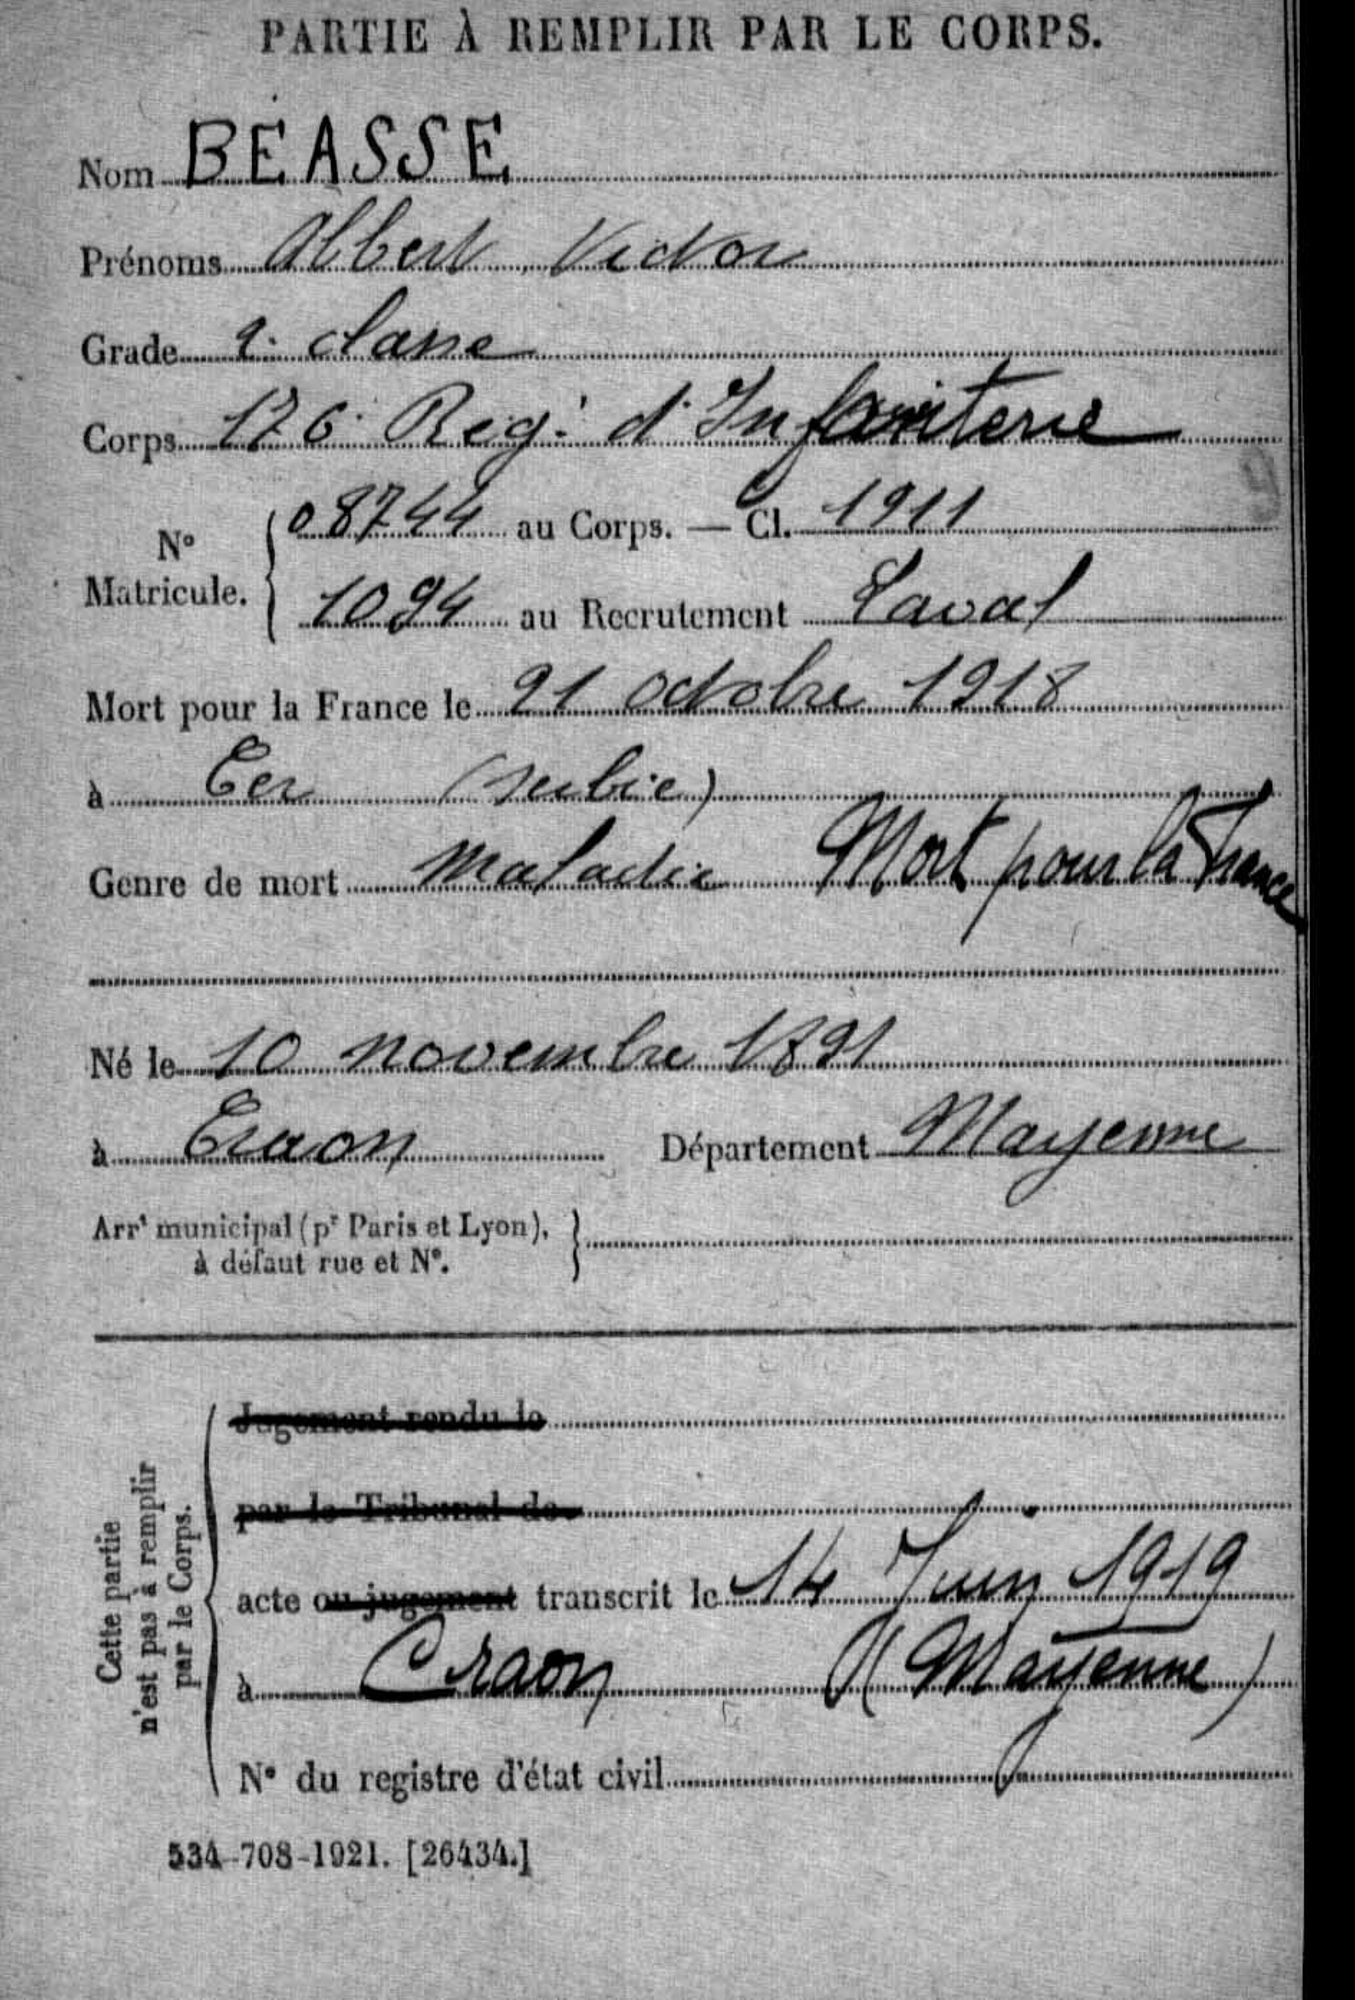 PARTIE À REMPLIR PAR LE CORPS.
Nom BÉASSE
Prénoms Albert Victor
Grade 2e classe
Corps 176e Reg.t d'Infanterie
N° Matricule. { 08744 au Corps. — Cl. 1911
1094 au Recrutement Laval
Mort pour la France le 21 octobre 1918
à Cer (Serbie)
Genre de mort Maladie Mort pour la France
Né le 10 novembre 1891
à Craon Département Mayenne
Arr^t municipal (p^r Paris et Lyon), }
à défaut rue et N°.
Cette partie
n'est pas à remplir
par le Corps.
Jugement rendu le
par le Tribunal de
acte ou jugement transcrit le 14 Juin 1919
à Craon (Mayenne)
N° du registre d'état civil
534-708-1921. [26434.]